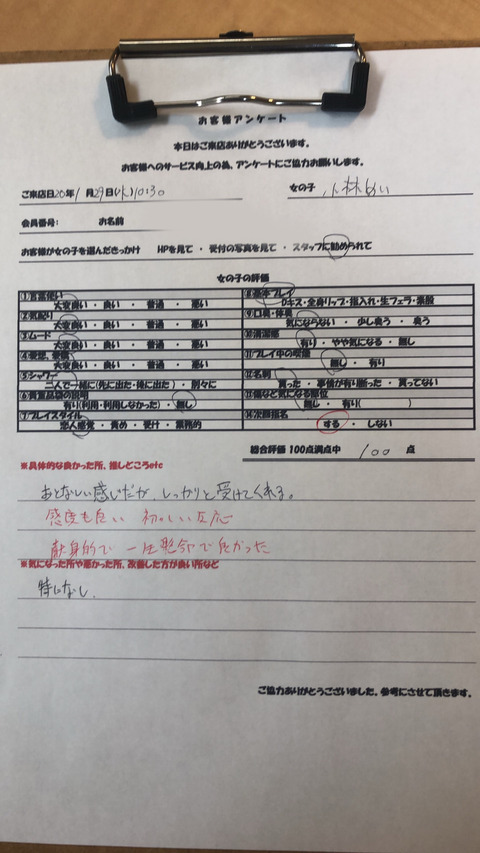 お客様アンケート
本日はご来店ありがとうございます。
お客様へのサービス向上の為、アンケートにご協力お願いします。
ご来店日20年1月29日(水)10:30 女の子 小林めい
会員番号: お名前
お客様が女の子を選んだきっかけ HPを見て ・ 受付の写真を見て ・ スタッフに勧められて
女の子の評価
①言葉使い
大変良い ・ 良い ・ 普通 ・ 悪い
②気配り
大変良い ・ 良い ・ 普通 ・ 悪い
③ムード
大変良い ・ 良い ・ 普通 ・ 悪い
④愛想、愛嬌
大変良い ・ 良い ・ 普通 ・ 悪い
⑤シャワー
二人で一緒に(先に出た・後に出た) ・ 別々に
⑥貴重品袋の説明
有り(利用・利用しなかった) ・ 無し
⑦プレイスタイル
恋人感覚 ・ 責め ・ 受け ・ 業務的
⑧基本プレイ
Dキス・全身リップ・指入れ・生フェラ・素股
⑨口臭・体臭
気にならない ・ 少し臭う ・ 臭う
⑩清潔感
有り ・ やや気になる ・ 無し
⑪プレイ中の喫煙
無し ・ 有り
⑫名刺
貰った ・ 事情が有り断った ・ 貰ってない
⑬傷など気になる部位
無し ・ 有り( )
⑭次回指名
する ・ しない
総合評価 100点満点中 100 点
※具体的な良かった所、推しどころetc
おとなしい感じだが、しっかりと受けてくれる。
感度も良い 初々しい反応
献身的で 一生懸命で良かった
※気になった所や悪かった所、改善した方が良い所など
特になし.
ご協力ありがとうございました。参考にさせて頂きます。